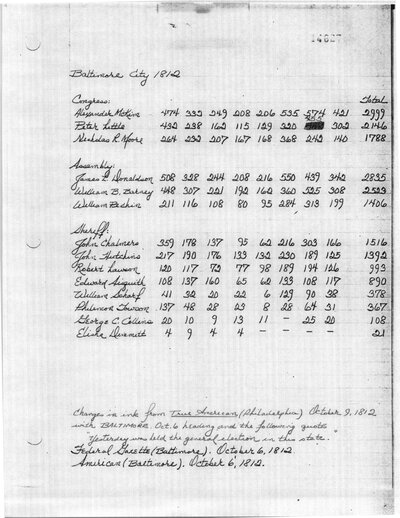 14627
Baltimore City 1812
Total
Congress:
Alexander McKim 474 332 249 208 206 535 574 421 2999
Peter Little 432 238 162 115 129 320 302 2146
Nicholas R. Moore 264 232 207 167 168 368 242 140 1788
Assembly:
James L. Donaldson 508 328 244 208 216 550 439 342 2835
William B. Barney 448 307 221 192 162 360 525 308 2523
William 211 116 108 80 95 284 313 199 1406
Sheriff:
John Chalmers 359 178 137 95 62 216 303 166 1516
John Hutchins 217 190 176 133 132 230 189 125 1392
Robert Lawson 120 117 72 77 98 189 194 126 993
Edward Aisquith 108 137 160 65 62 133 108 117 890
William Scharf 41 32 20 22 6 129 90 38 378
Philemon Towson 137 48 28 23 8 28 64 31 367
George C. Collins 20 10 9 13 11 - 25 20 108
Elisha 4 9 4 4 - - - - 21
Changes in ink from True American (Philadelphia) October 9, 1812
with BALTIMORE Oct. 6 heading and the following quote
"Yesterday was held the general election in this state."
Federal Gazette (Baltimore). October 6, 1812
American (Baltimore). October 6, 1812.